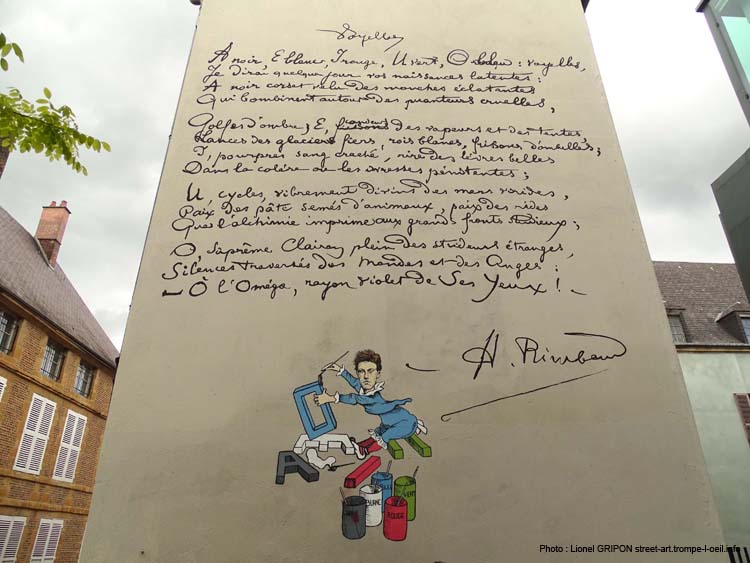 Voyelles
A noir, E blanc, I rouge, U vert, O bleu : voyelles,
Je dirai quelque jour vos naissances latentes :
A noir corset velu des mouches éclatantes
Qui bombinent autour des puanteurs cruelles,
Golfes d'ombre ; E, frissons candeurs des vapeurs et des tentes,
Lances des glaciers fiers, rois blancs, frissons d'ombelles ;
I, pourpres, sang craché, rire des lèvres belles
Dans la colère ou les ivresses pénitentes ;
U, cycles, vibrements divins des mers virides,
Paix des pâtis semés d'animaux, paix des rides
Que l'alchimie imprime aux grands fronts studieux ;
O, Suprême Clairon plein des strideurs étranges,
Silences traversés des Mondes et des Anges :
— Ô l'Oméga, rayon violet de Ses Yeux ! —
A. Rimbaud
BLANC
VERT
ROUGE
Photo : Lionel GRIPON street-art.trompe-l-oeil.info